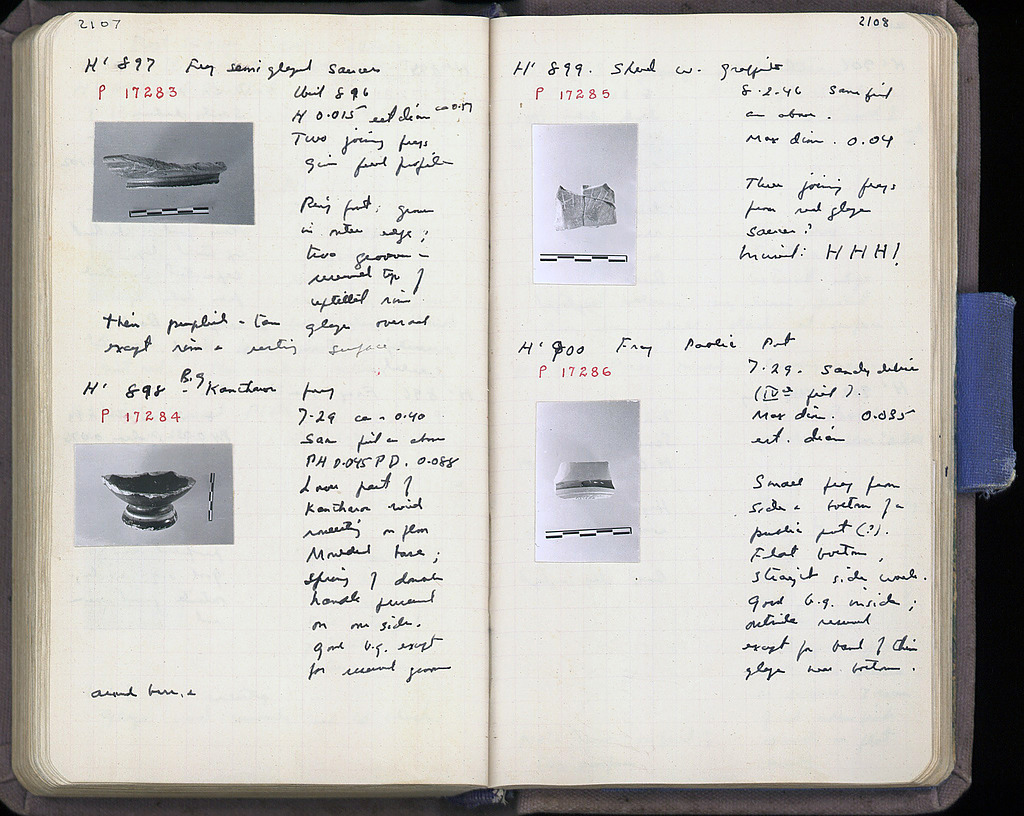 2107
H' 897 Frag semi glazed saucer
P 17283
Until 896
H 0.015 est diam ca 0.17
Two joining frags
give full profile
Ring foot; groove
in outer edge;
two grooves in
reserved top of
uptilted rim.
Thin purplish-tan glaze overall
except rim & resting surface.
H' 898 B.g. Kantharos frag
P 17284
7-29 ca - 0.40
Same fill as above
PH 0.045 PD. 0.088
Lower part of
Kantharos
on floor
Moulded base;
spring of double
handle preserved
on one side.
Good b.g. except
for reserved groove
around base, &
2108
H' 899. Sherd w. graffito
P 17285
8-2-46 Same fill
as above.
Max dim. 0.04
Three joining frags
from red glaze
saucer?
Incised: HHH!
H' 900 Frag Public Pot
P 17286
7-29. Sandy debris
(IV fill).
Max dim. 0.035
est. diam
Small frag from
side & bottom of a
public pot (?).
Flat bottom,
straight side walls.
Good b.g. inside;
outside reserved
except for band of thin
glaze near bottom.